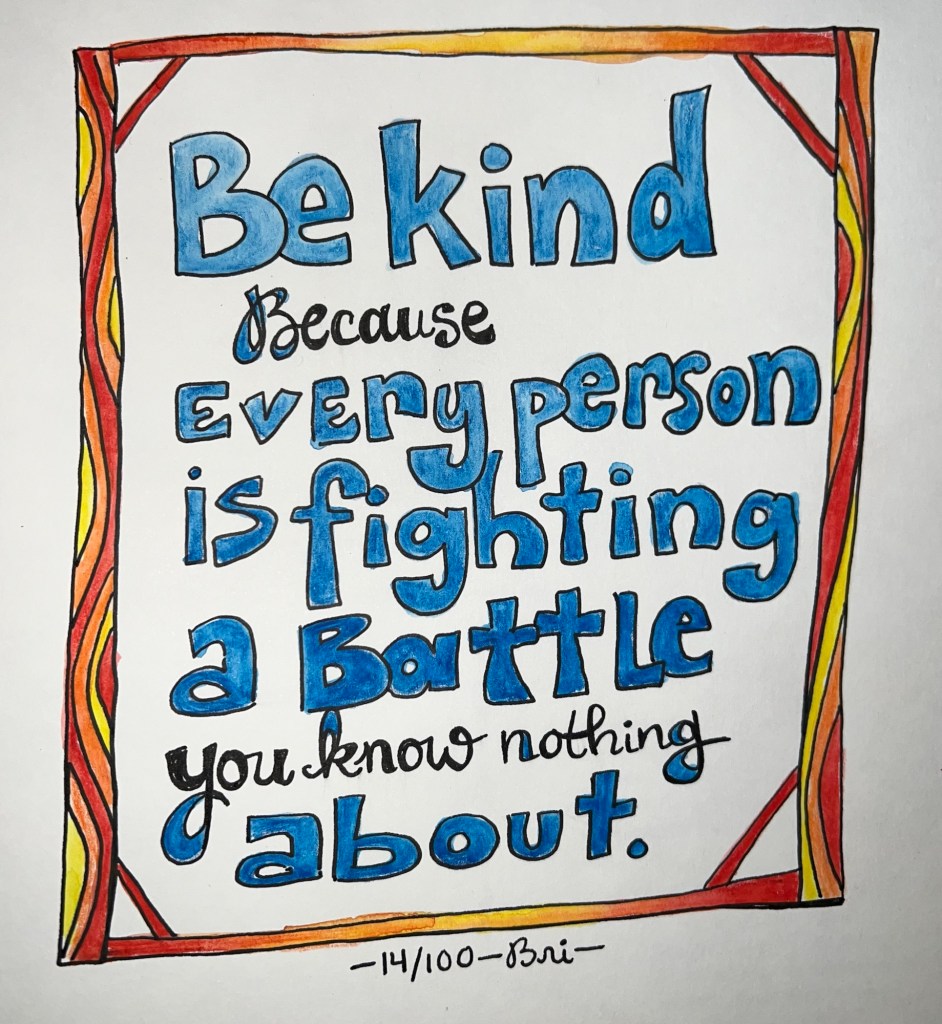 Be kind
Because
EvEry person
is fighting
a BattLe
you know nothing
about.
-14/100-Bri-